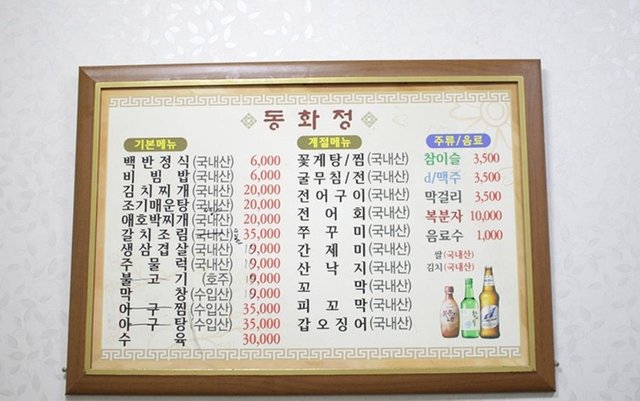 동화정
기본메뉴
백반정식(국내산) 6,000
비빔밥(국내산) 6,000
김치찌개(국내산) 20,000
조기매운탕(국내산) 20,000
애호박찌개(국내산) 20,000
갈치조림(국내산) 35,000
생삼겹살(국내산)
주물럭(국내산)
불고기(호주)
막창(수입산)
아구찜(수입산) 35,000
아구탕(수입산) 35,000
수육 30,000
계절메뉴
꽃게탕/찜(국내산)
굴무침/전(국내산)
전어구이(국내산)
전어회(국내산)
쭈꾸미(국내산)
간제미(국내산)
산낙지(국내산)
꼬막(국내산)
피꼬막(국내산)
갑오징어(국내산)
주류/음료
참이슬 3,500
d/맥주 3,500
막걸리 3,500
복분자 10,000
음료수 1,000
쌀(국내산)
김치(국내산)